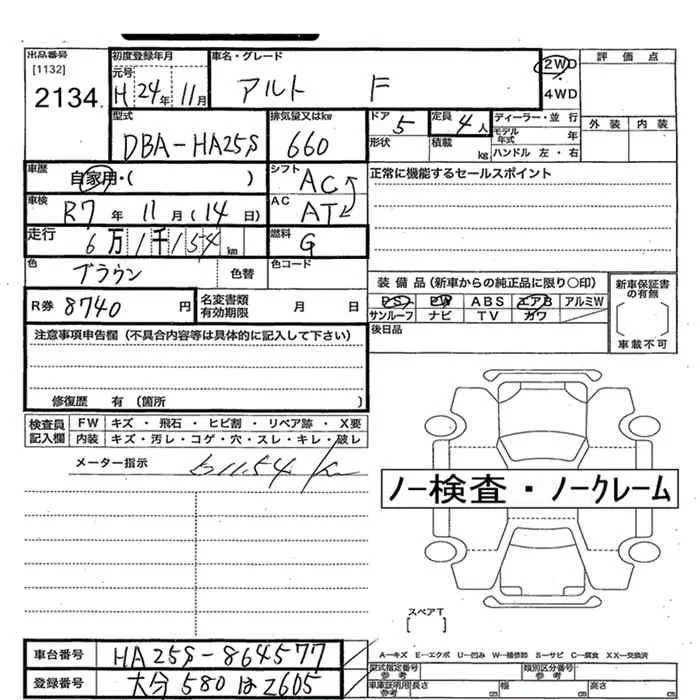 出品番号 初度登録年月 車名・グレード 2WD 評価点
[1132] 元号
2134 H 24年 11月 アルト F 4WD
型式 排気量又はkw ドア 定員 ディーラー・並行 外装 内装
DBA-HA25S 660 5 4人 モデル年式 年
形状 積載 kg ハンドル 左・右
車歴 自家用・( ) シフト AC 正常に機能するセールスポイント
車検 R7年 11月(14日) AC AT
走行 6万1千154km 燃料 G
色 ブラウン 色替 色コード
装備品(新車からの純正品に限り○印) 新車保証書の有無
R券 8740円 名変書類有効期限 月 日 PS PW ABS エアB アルミW
サンルーフ ナビ TV カワ
車載不可
注意事項申告欄(不具合内容等は具体的に記入して下さい) 後日品
修復歴 有(箇所 )
検査員記入欄 FW キズ・飛石・ヒビ割・リペア跡・X要
内装 キズ・汚レ・コゲ・穴・スレ・キレ・破レ
メーター指示 61154Km
ノー検査・ノークレーム
スペアT
[ ]
車台番号 HA25S-864577 A-キズ E-エクボ U-凹み W-補修跡 S-サビ C-腐食 XX-交換済
登録番号 大分 580 は 2605 型式指定番号 参考 類別区分番号 参考
車庫証明用 参考 長さ cm 幅 cm 高さ cm